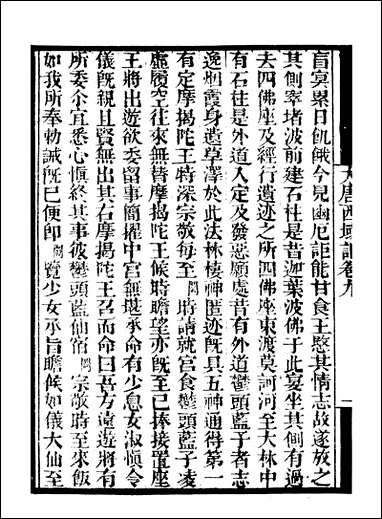 盲冥累日飢餓今見幽厄詎能甘食王愍其情志故遂放之
其側窣堵波前建石柱是昔迦葉波佛于此宴坐其側有過
去四佛座及經行遺迹之所四佛座東渡莫訶河至大林中
有石柱是外道入定及發惡願處昔有外道鬱頭藍子者志
逸烟霞身遺草澤於此法林棲神匿迹既具五神通得第一
有定摩揭陀王特深宗敬每至時請就宮食鬱頭藍子凌
虛履空往來無替摩揭陀王候時瞻望亦既至已捧接置座
王將出遊欲委留事簡擢中宮無堪承命有少息女淑慎令
儀既親且賢無出其右摩揭陀王召而命曰吾方遠遊將有
所委介宜悉心慎終其事彼鬱頭藍仙宿宗敬時至來飯
如我所奉勅誡既已便即覽少女承旨瞻候如儀大仙至
大唐西域記卷九
一